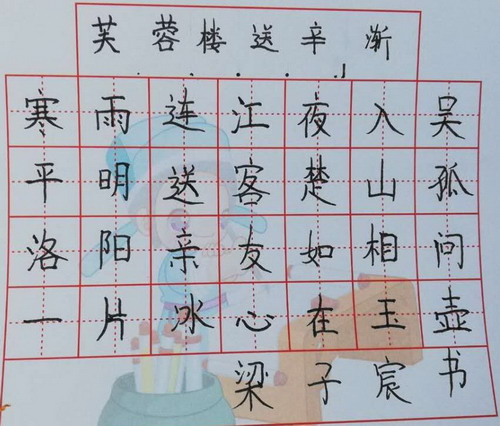 芙蓉楼送辛渐
寒雨连江夜入吴
平明送客楚山孤
洛阳亲友如相问
一片冰心在玉壶
梁子宸书